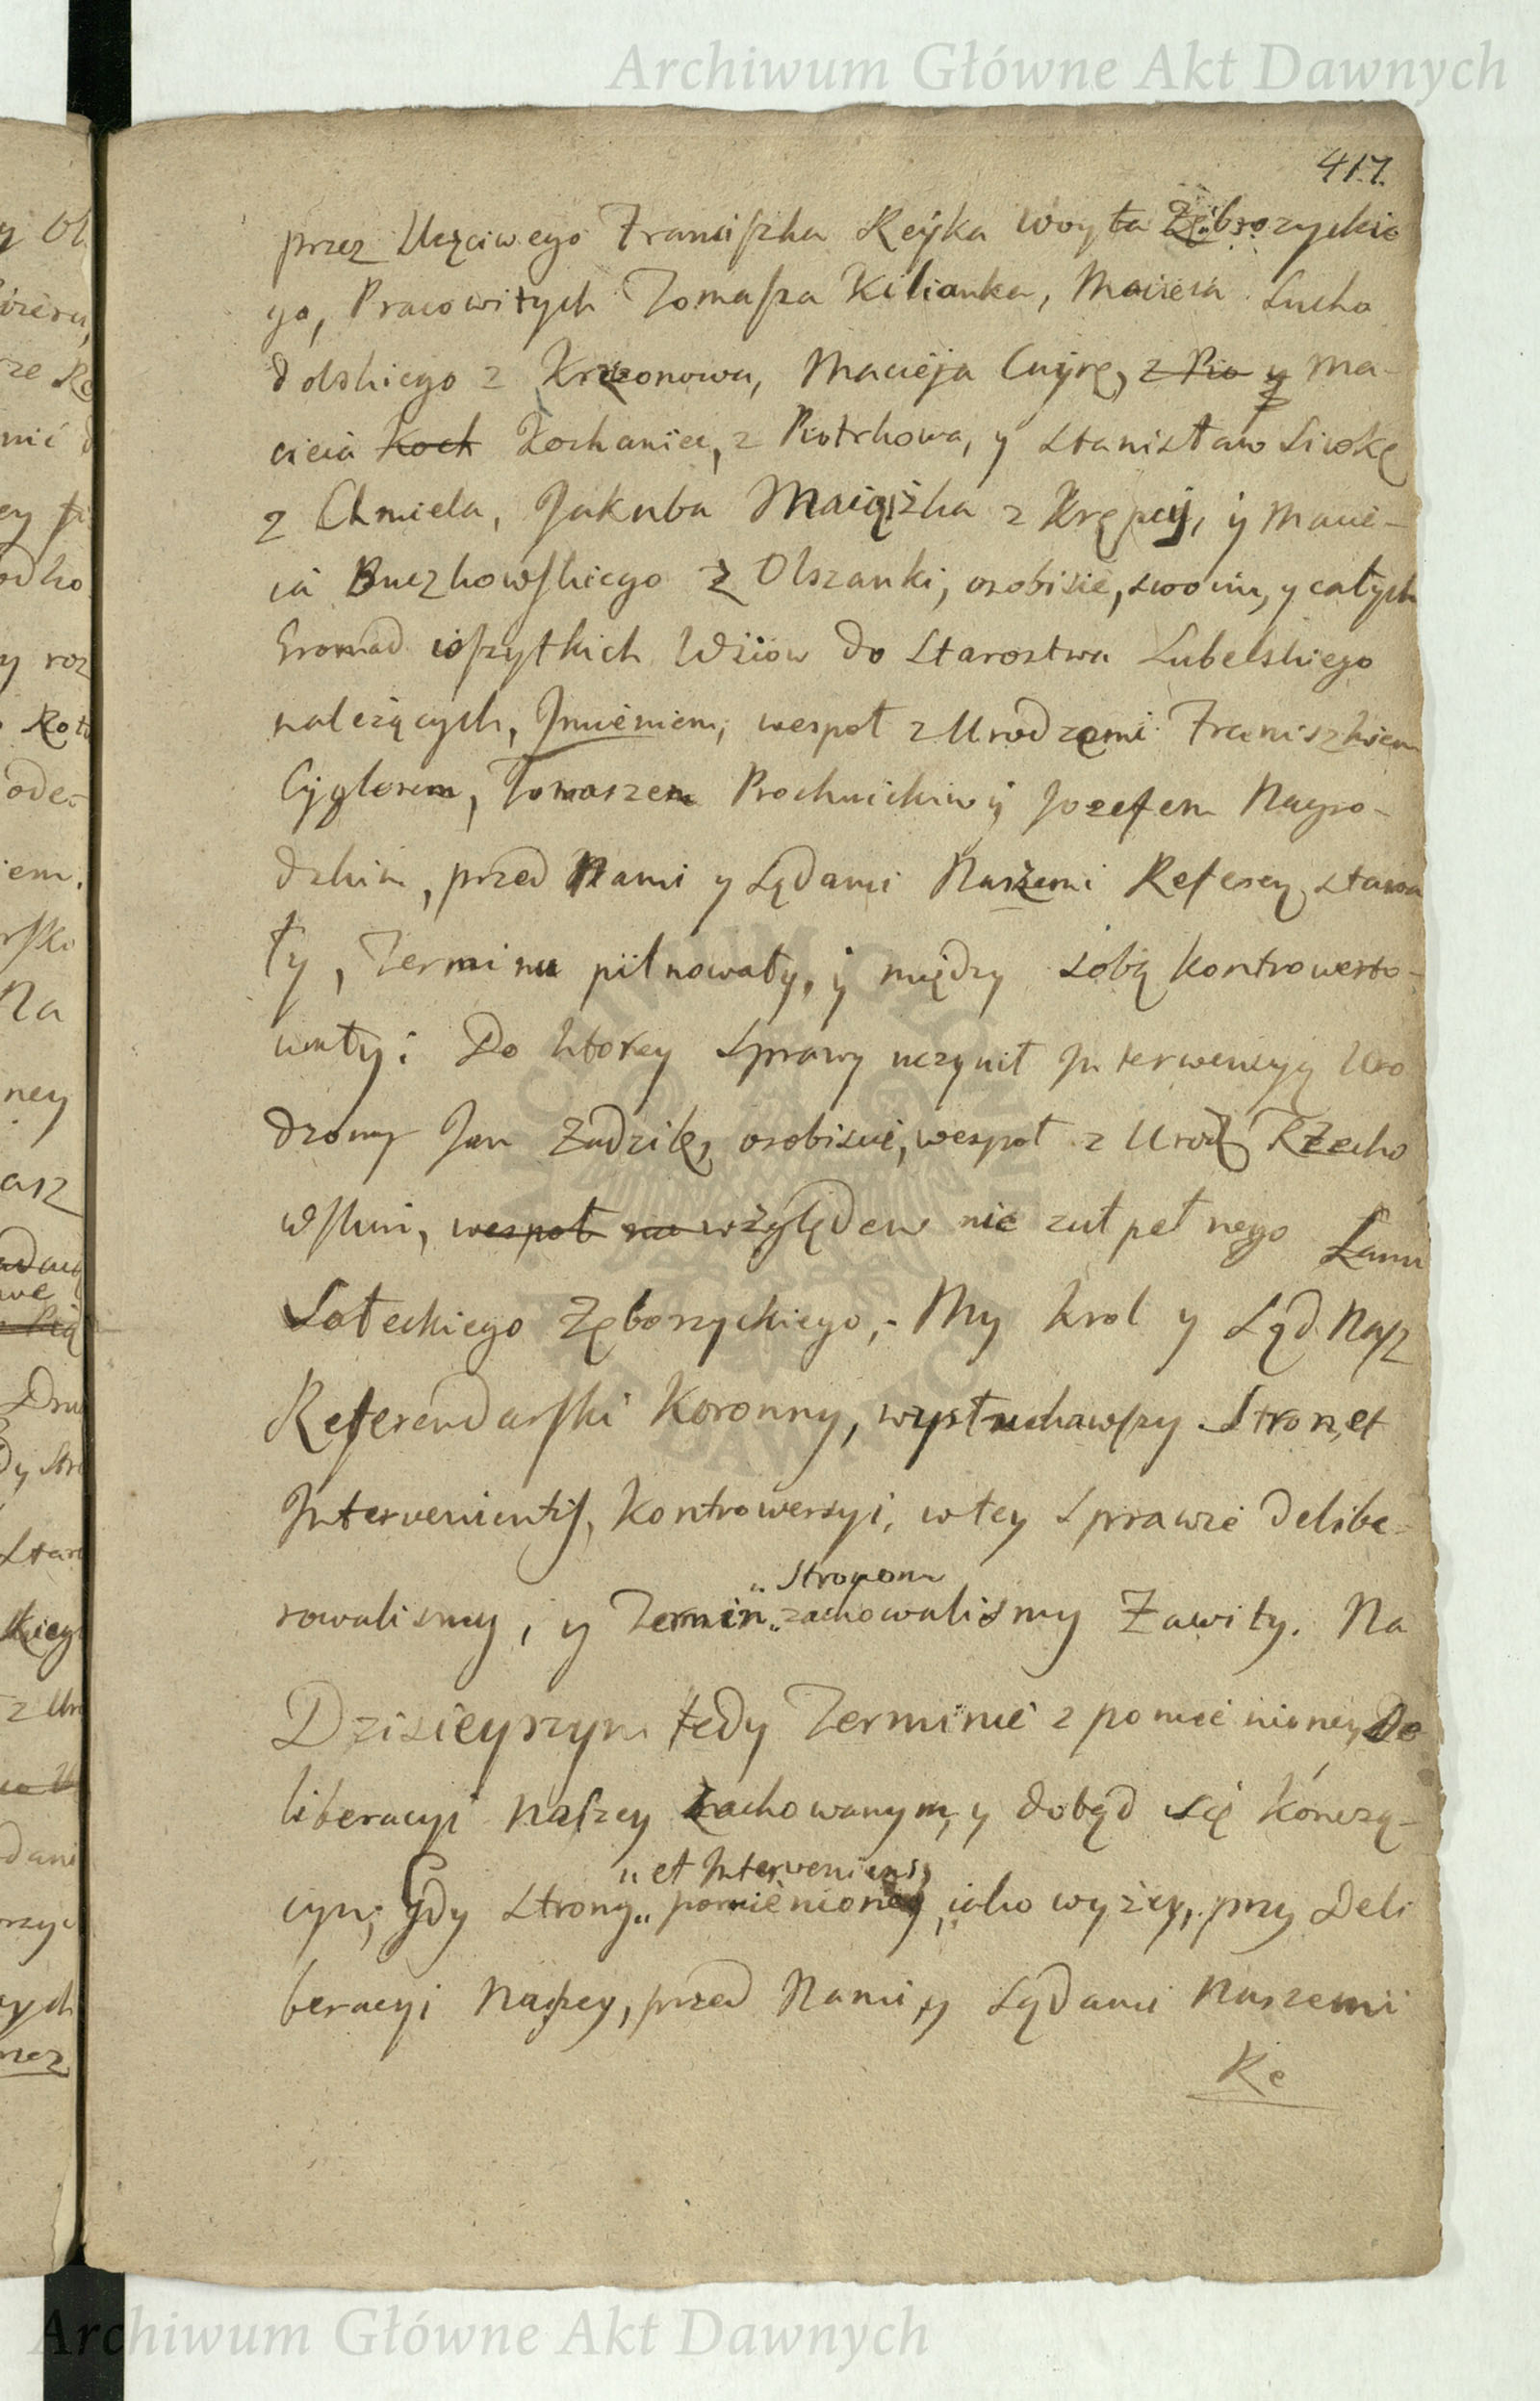 Archiwum Główne Akt Dawnych
417.
przez Uczciwego Franciszka Reyka Woyta Zęborzyckie
go, Pracowitych Tomasza Kilianka, Macieia Sucho
dolskiego z Krzczonowa, Macieja Cuyrę, z Pio y Ma-
cieia Koch Kochaniec, z Piotrkowa, y Stanisław Siwkę
z Chmiela, Jakuba Maciążka z Krępcy, y Macie-
ia Buczkowskiego z Olszanki, osobiscie, swoim, y całych
Gromad wszytkich Wsiow do Starostwa Lubelskiego
należących, Jmieniem, wespoł z Urodzęmi Franciszkiem
Cyglerem, Tomaszem Prochnickim y Jozefem Nagro-
dzkim, przed Nami y Sądami Naszemi Referen. stawa
ły, Terminu pilnowały, y między sobą kontrowerto-
wały: Do ktorey Sprawy uczynił Jnterwencyą Uro
dzony Jan Zudzik, osobiscie, wespoł z Urodz Rzecho
wskim, wespoł na względem nie zupełnego Łanu
Sołeckiego Zęborzyckiego,- My Krol y Sąd Nasz
Referendarski Koronny, wysłuchawszy Stron, et
Jntervenientis, Kontrowersyi, w tey Sprawie delibe-
rowalismy, y Termin „ Stronom „ zachowalismy Zawity. Na
Dzisieyszym tedy Terminie z pomienioney De
liberacyi Naszey zachowanym, y dotąd się kończą-
cym; Gdy Strony „ et Interveniens „ pomienione, iako wyżey, przy Deli
beracyi Naszey, przed Nami, y Sądami Naszemi
Re
Archiwum Główne Akt Dawnych